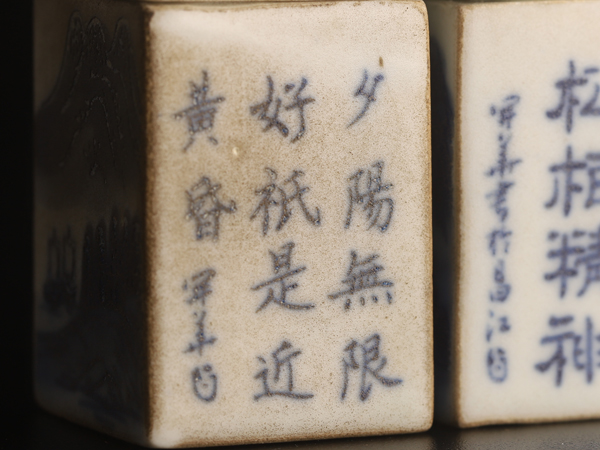 夕陽無限
好祇是近
黃昏
松柏精神
書於昌江